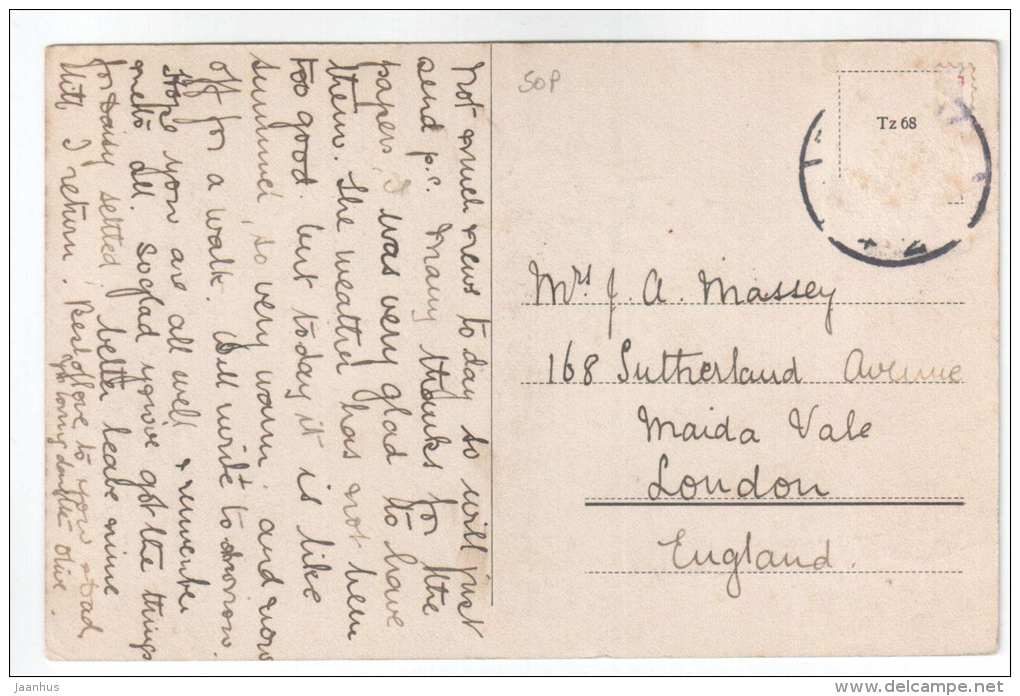 Not much news to day so will just
send p.c. Many thanks for the
papers, I was very glad to have
them. The weather has not been
too good. but today it is like
summer, so very warm. and now
off for a walk. Will write to-morrow.
Hope you are all well & remember
me to all. so glad you've got the things
for Daisy settled, better leave mine
till I return. Best of love to you & Dad,
yr loving daughter Olive.
50P
Tz 68
Mrs J. A. Massey
168 Sutherland Avenue
Maida Vale
London
England.
jaanhus
www.delcampe.net